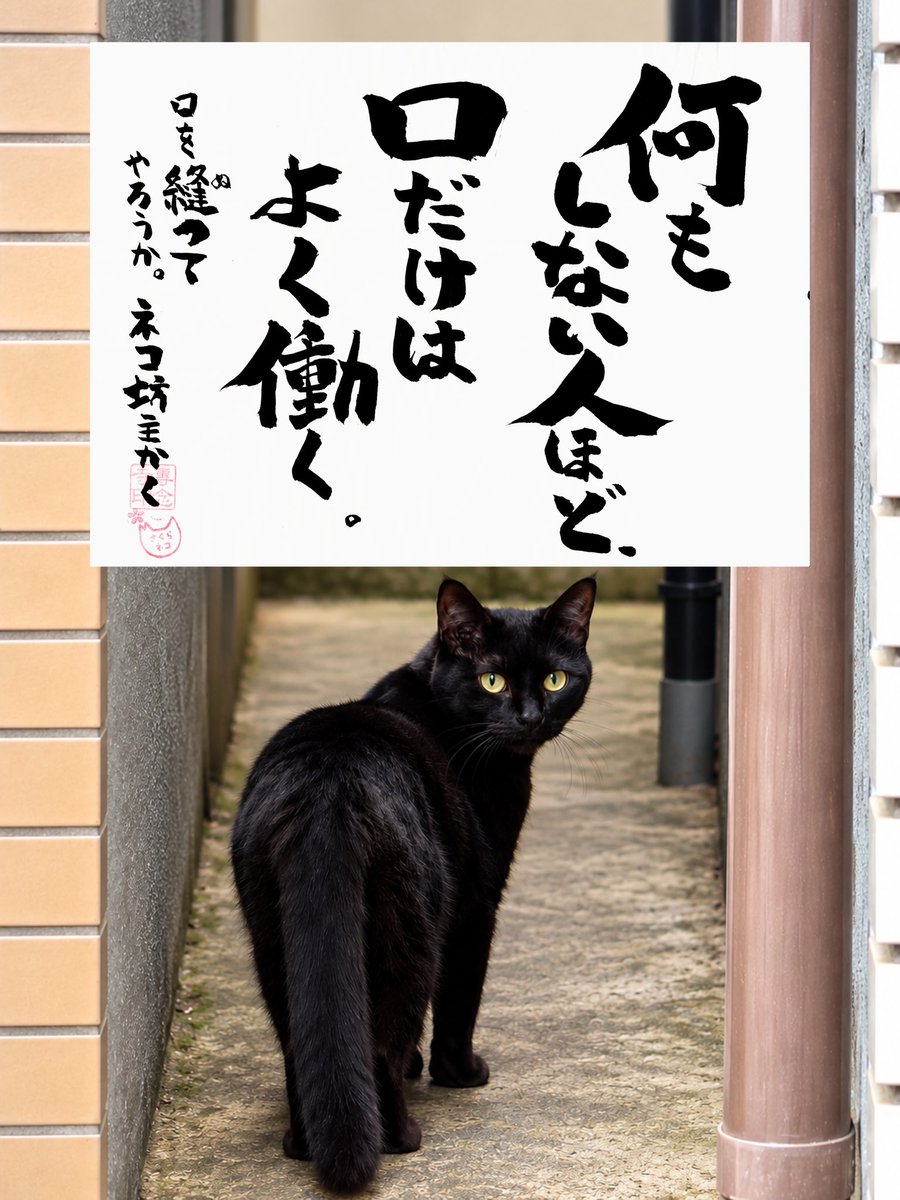 何も
しない人ほど、
口だけは
よく働く。
口を縫って
ぬ
やろうか。
ネコ坊主かく
専念
寺印
さくら
ネコ